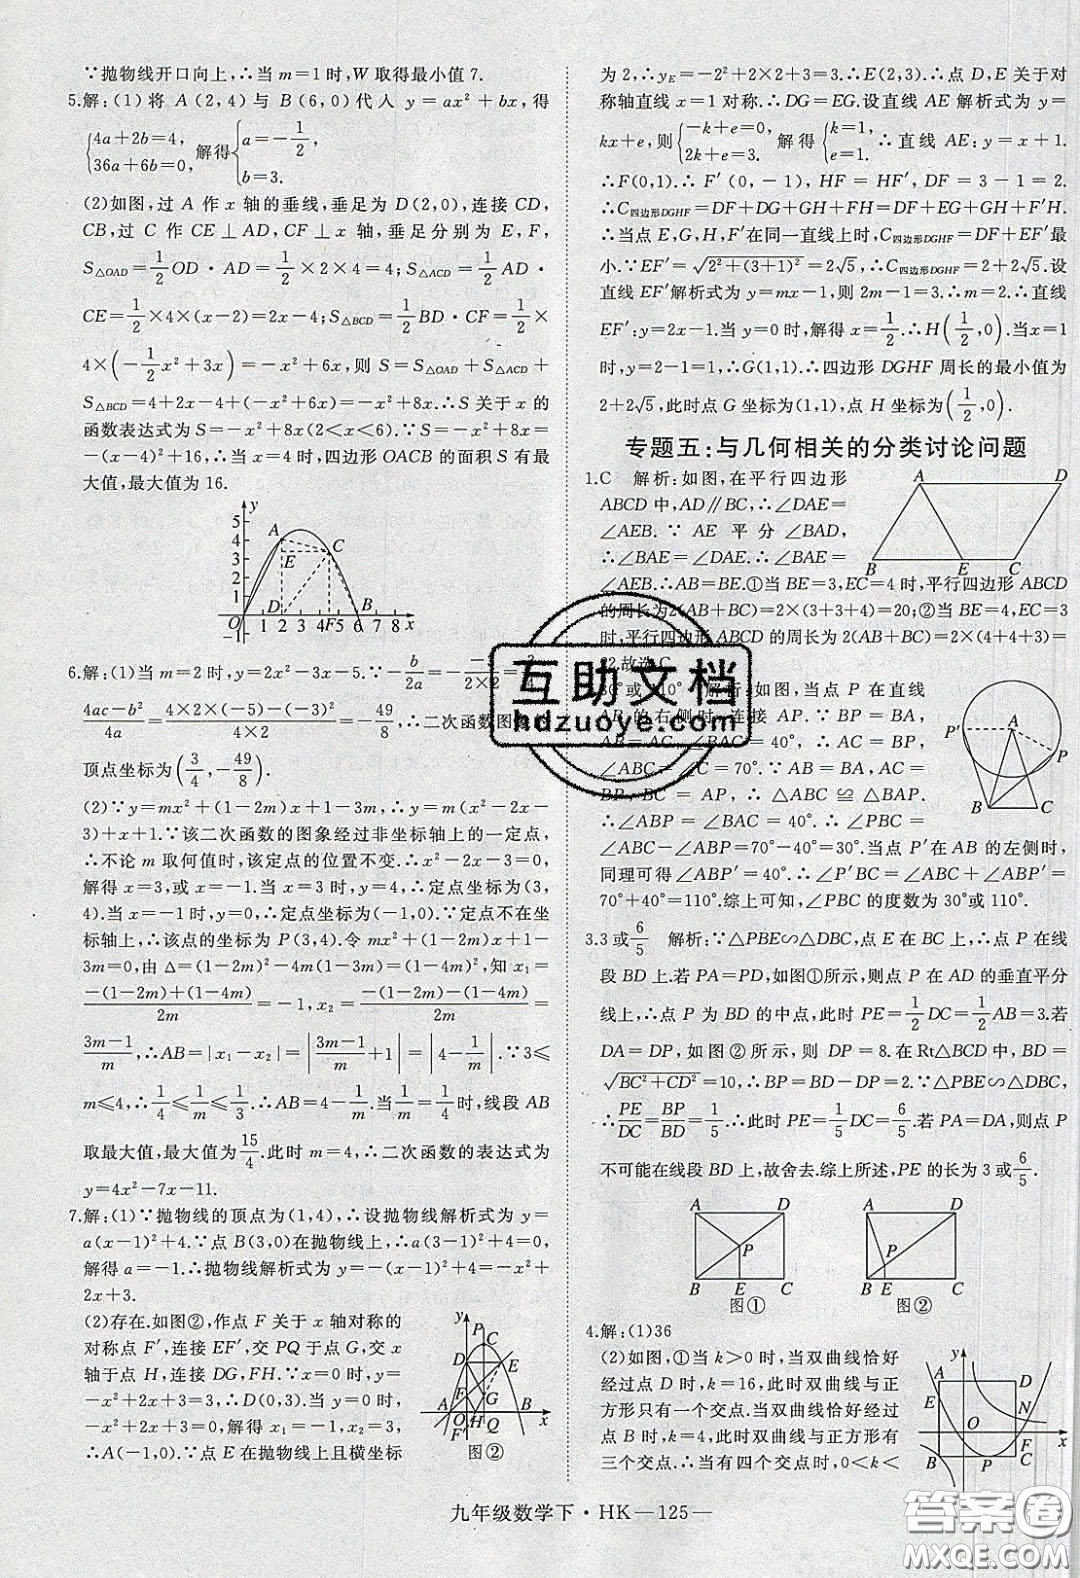 ∵抛物线开口向上,∴当 m=1时,W 取得最小值7.
5.解:(1)将 A(2,4)与 B(6,0)代入 y=ax²+bx,得
{4a+2b=4, 36a+6b=0, 解得{a=-1/2, b=3.
(2)如图,过 A 作 x 轴的垂线,垂足为D(2,0),连接 CD,
CB,过 C 作 CE⊥AD,CF⊥x 轴,垂足分别为 E,F,
S△OAD=1/2OD·AD=1/2×2×4=4;S△ACD=1/2AD·
CE=1/2×4×(x-2)=2x-4;S△BCD=1/2BD·CF=1/2×
4×(-1/2x²+3x)=-x²+6x,则 S=S△OAD+S△ACD+
S△BCD=4+2x-4+(-x²+6x)=-x²+8x.∴S 关于 x 的
函数表达式为S=-x²+8x(2<x<6).∵S=-x²+8x=
-(x-4)²+16,∴当x=4时,四边形OACB的面积S有最
大值,最大值为16.
y
5
4
3
2
1
-1
O 1 2 3 4 F 5 6 7 8 x
A
E
C
D
B
6.解:(1)当m=2时,y=2x²-3x-5.∵-b/2a=
(4ac-b²)/4a=(4×2×(-5)-(-3)²)/(4×2)=-49/8,∴二次函数图
顶点坐标为(3/4,-49/8).
(2)∵y=mx²+(1-2m)x+1-3m=m(x²-2x-
3)+x+1.∵该二次函数的图象经过非坐标轴上的一定点,
∴不论m取何值时,该定点的位置不变.∴x²-2x-3=0,
解得 x=3,或x=-1.当x=3时,y=4,∴定点坐标为(3,
4).当x=-1时,y=0,∴定点坐标为(-1,0).∵定点不在坐
标轴上,∴该点的坐标为 P(3,4).令 mx²+(1-2m)x+1-
3m=0,由 Δ=(1-2m)²-4m(1-3m)=(1-4m)²,知x₁=
(-(1-2m)+(1-4m))/2m=-1,x₂=(-(1-2m)-(1-4m))/2m=
(3m-1)/m,∴AB=|x₁-x₂|=|(3m-1)/m+1|=|4-1/m|.∵3≤
m≤4,∴1/4≤1/m≤1/3.∴AB=4-1/m.当1/m=1/4时,线段AB
取最大值,最大值为15/4.此时m=4,∴二次函数的表达式为
y=4x²-7x-11.
7.解:(1)∵抛物线的顶点为(1,4),∴设抛物线解析式为y=
a(x-1)²+4.∵点B(3,0)在抛物线上,∴a(3-1)²+4=0,
解得a=-1.∴抛物线解析式为y=-(x-1)²+4=-x²+
2x+3.
(2)存在.如图②,作点 F 关于 x 轴对称的
对称点 F′,连接EF′,交 PQ 于点G,交 x
轴于点 H,连接 DG,FH.∵抛物线为 y=
-x²+2x+3,∴D(0,3).当 y=0时,
-x²+2x+3=0,解得 x₁=-1,x₂=3,
∴A(-1,0).∵点 E 在抛物线上且横坐标
y P C D E F G A O H B x F′ Q
图②
为2,∴yE=-2²+2×2+3=3.∴E(2,3).∴点 D,E 关于对
称轴直线 x=1对称.∴DG=EG.设直线 AE 解析式为 y=
kx+e,则{-k+e=0, 2k+e=3, 解得{k=1, e=1. ∴直线 AE:y=x+1.
∴F(0,1).∴F′(0,-1),HF=HF′,DF=3-1=2.
∴C四边形DGHF=DF+DG+GH+FH=DF+EG+GH+F′H.
∴当点E,G,H,F′在同一直线上时,C四边形DGHF=DF+EF′最
小.∵EF′=√(2²+(3+1)²)=2√5,∴C四边形DGHF=2+2√5.设
直线 EF′解析式为y=mx-1,则 2m-1=3.∴m=2.∴直线
EF′:y=2x-1.当 y=0时,解得x=1/2.∴H(1/2,0).当x=1
时,y=2-1=1,∴G(1,1).∴四边形 DGHF 周长的最小值为
2+2√5,此时点 G 坐标为(1,1),点 H 坐标为(1/2,0).
专题五:与几何相关的分类讨论问题
1.C 解析:如图,在平行四边形
ABCD 中,AD∥BC,∴∠DAE=
∠AEB.∵AE 平分∠BAD,
∴∠BAE=∠DAE.∴∠BAE=
∠AEB.∴AB=BE.①当BE=3,EC=4时,平行四边形 ABCD
的周长为2(AB+BC)=2×(3+3+4)=20;②当BE=4,EC=3
时,平行四边形ABCD的周长为2(AB+BC)=2×(4+4+3)=
22.故选C.
A D B E C
30°或110° 解析:如图,当点 P 在直线
AB 的右侧时,连接 AP.∵BP=BA,
AB=AC,∠BAC=40°,∴∠ABC=
∠ABC=∠C=70°.∵AB=BA,AC=
BP,BC=AP,∴△ABC≌△BAP.
∴∠ABP=∠BAC=40°.∴∠PBC=
∠ABC-∠ABP=70°-40°=30°.当点 P′在AB 的左侧时,
同理可得∠ABP′=40°.∴∠P′BC=∠ABC+∠ABP′=
70°+40°=110°.综上可知,∠PBC 的度数为30°或110°.
P′ A P B C
3.3或6/5 解析:∵△PBE∽△DBC,点E在BC上,∴点 P 在线
段 BD 上.若 PA=PD,如图①所示,则点 P 在 AD 的垂直平分
线上,∴点 P 为 BD 的中点,此时 PE=1/2DC=1/2AB=3.若
DA=DP,如图②所示,则 DP=8.在Rt△BCD 中,BD=
√(BC²+CD²)=10,∴BP=BD-DP=2.∵△PBE∽△DBC,
∴PE/DC=BP/BD=1/5.∴此时 PE=1/5DC=6/5.若PA=DA,则点 P
不可能在线段BD上,故舍去.综上所述,PE的长为3或6/5.
A D P B E C
图①
A D P B E C
图②
4.解:(1)36
(2)如图,①当 k>0时,当双曲线恰好
经过点D时,k=16,此时双曲线与正
方形只有一个交点.当双曲线恰好经过
点B时,k=4,此时双曲线与正方形有
三个交点.∴当有四个交点时,0<k<
y A D E N O F x B P C
九年级数学下·HK—125—
互助文档
hdzuoye.com
答案圈
MXQE.COM